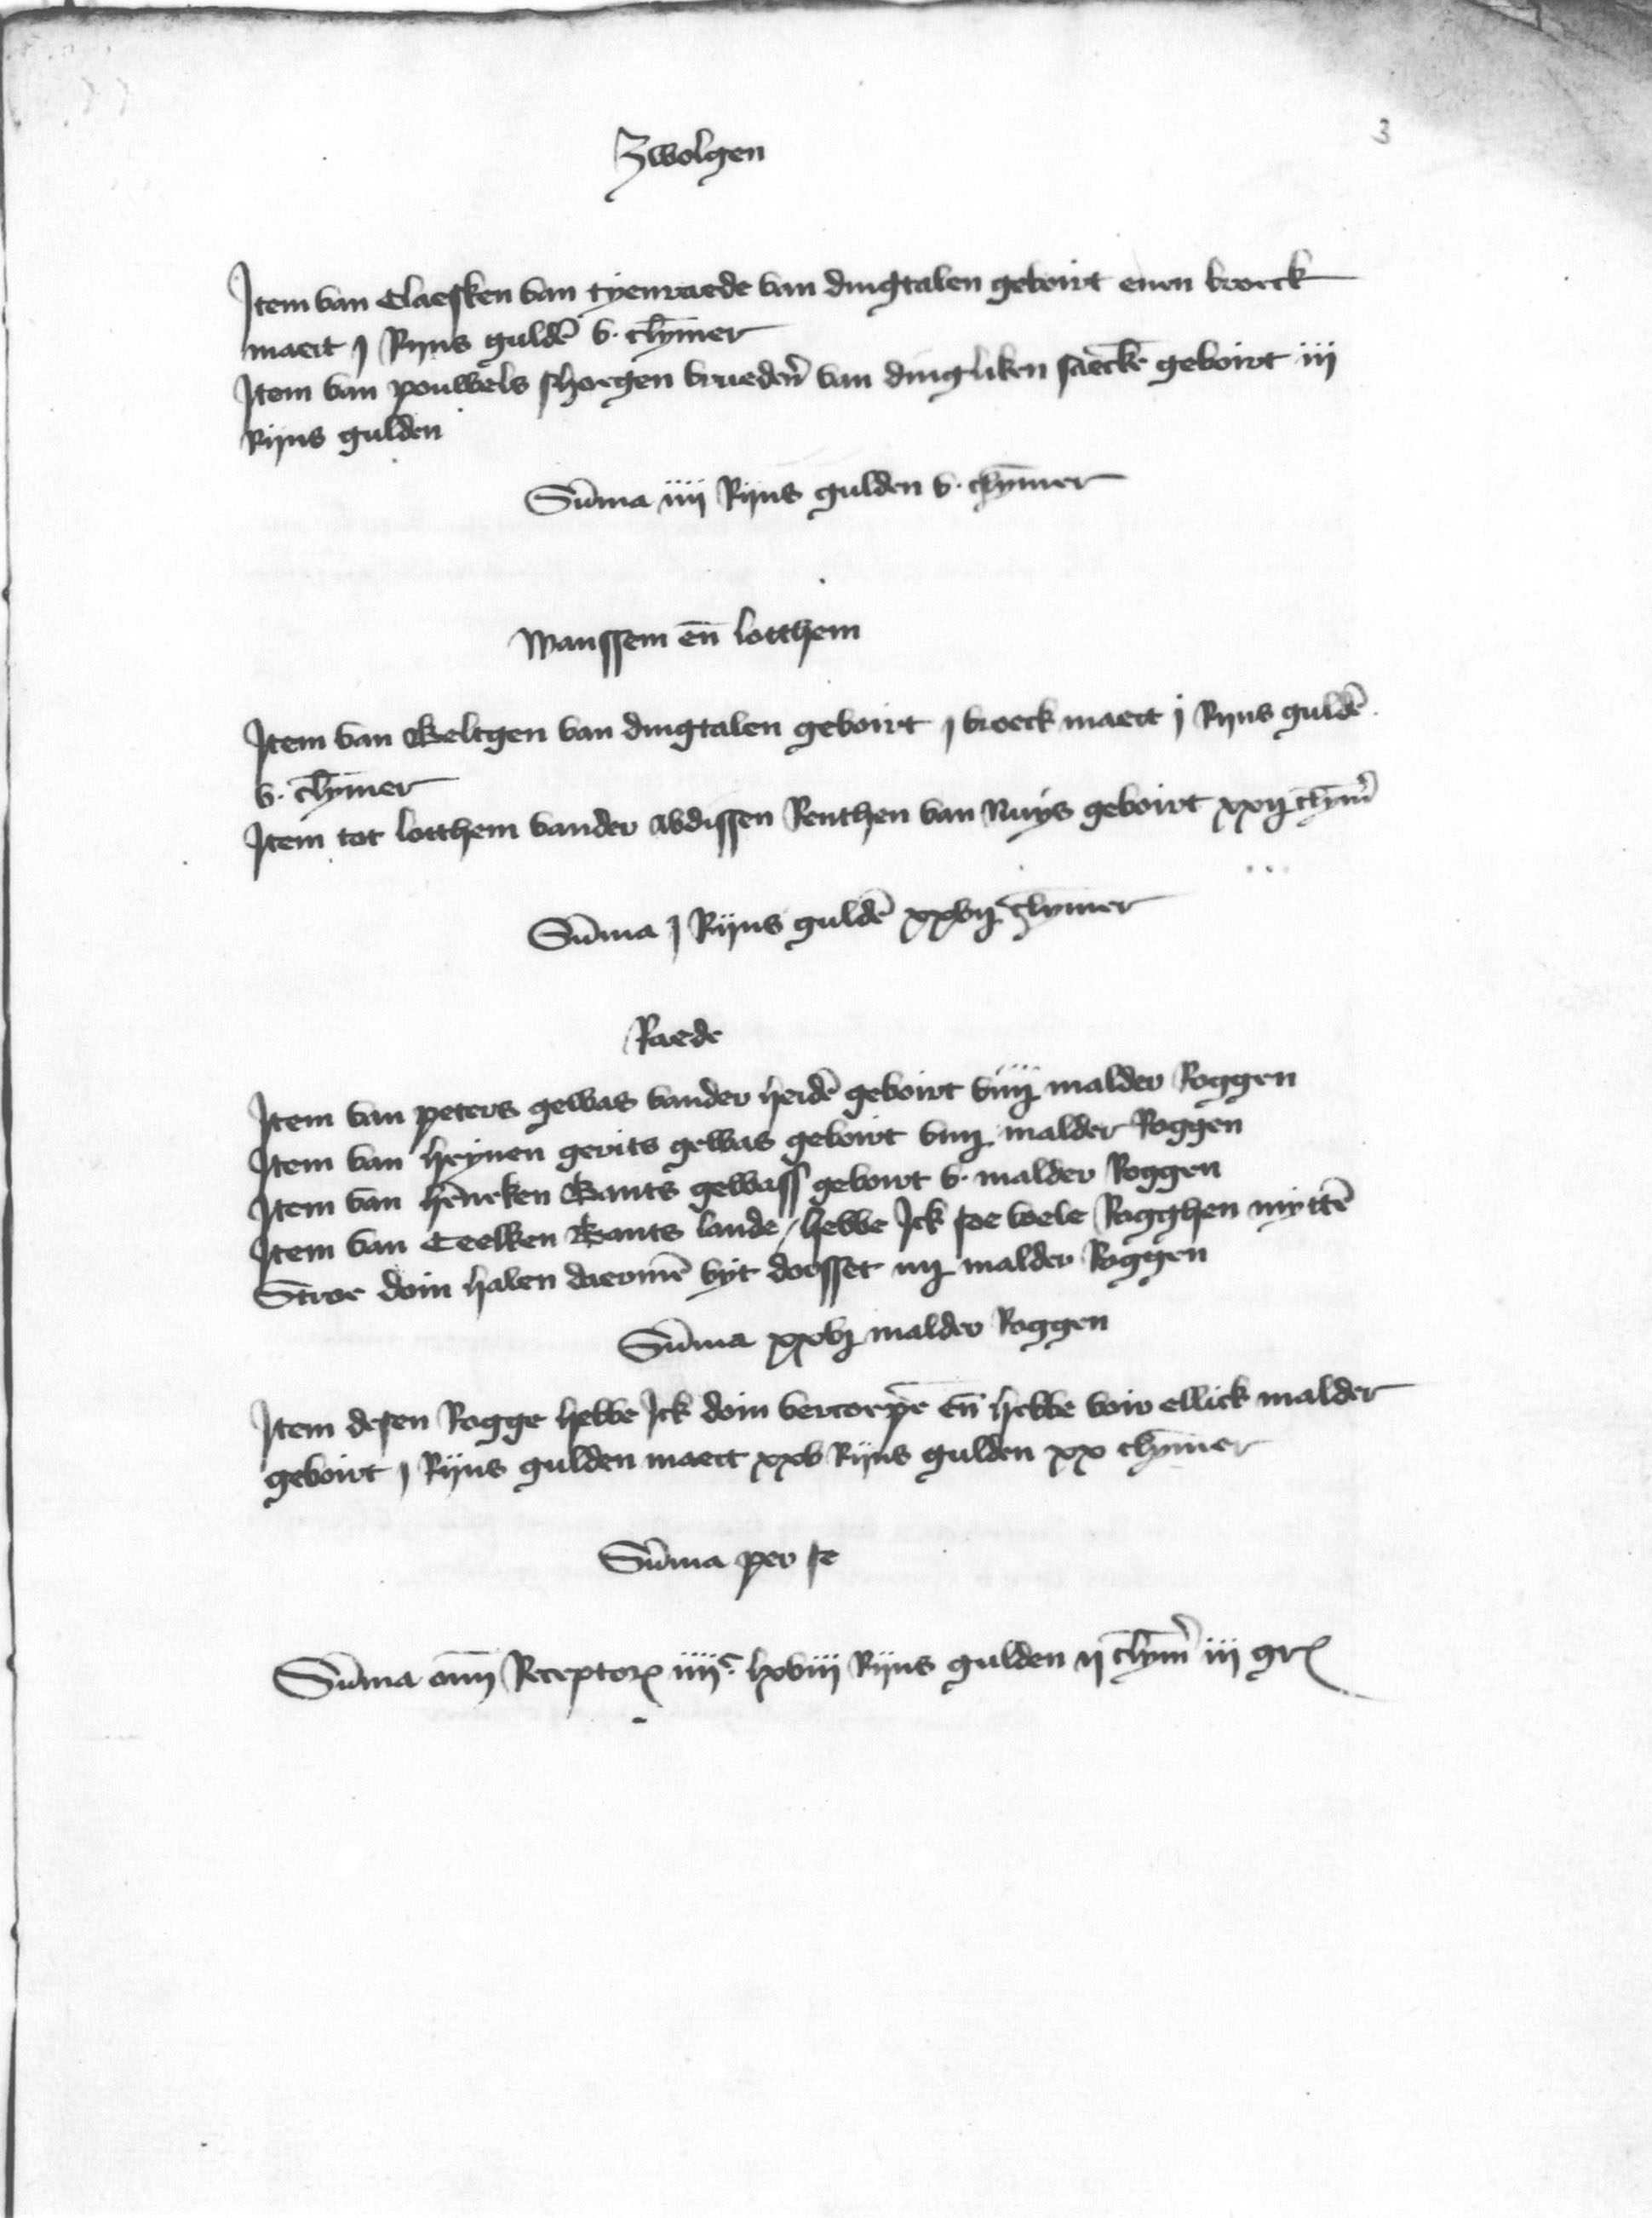 3
Zwolgen
Item van Claesken van tyenraede van dingtalen geboirt enen broeck
maect j Rijns guldē v. chȳmer
Item van pouwels van dingliken saeckē geboirt iii
Rijns gulden
Sūma iiij Rijns gulden v. chȳmer
Manssem eñ lotthem
Item van Beltgen van dingtalen geboirt j broeck maect j Rijns guldē
v. chȳmer
Item tot lotthem vander abdissen Renthen van Nuys geboirt xxij chym̄
Sūma j Rijns guldē xxvij chymer
Raede
Item van peters gewas vander heidē geboirt viiij malder Roggen
Item van heynen gerits gewas geboirt viij malder Roggen
Item van hēneken Bants gewass geboirt v. malder Roggen
Item van Ceelken Bants lande / hebbe Ick soe voele Rogghen myttē
Stroe doin halen daermē vyt dorsset iiij malder Roggen
Sūma xxvj malder Roggen
Item desen Rogge hebbe Ick doin vercorpē eñ hebbe voir ellick malder
geboirt j Rijns gulden maect xxv Rijns gulden xx chȳmer
Sūma per se
Sūma om̄ Receptoꝝ iiijᶜ lxviii Rijns gulden ij chym̄ iii gr